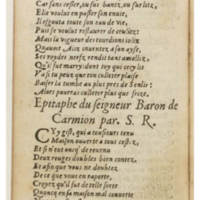 Car sans cesser, ou sus bancz, ou sur lictz,
Elle voulut en passer son envie,
Il esgouta toute son eau de vie.
Puis se voulut restaurer de coulicz:
Mais la vigueur des tourdions iolis
Quant
Ses roydes nerfz, rendit tant amollis,
Qu'il fut marry: dont toy qui
Vas peu qu'on te culleter plaise
Baiser la tombe au plus pres de
Alors pourras culleter plus que seize.
Epitaphe du seigneur Baron de
Carmion par. S. R.
Cy gist, qui a tousiours tenu
Maison ouverte a tous costez,
Et si n'eut oncq de revenu
Deux rouges doubles bien contez.
Et afin que vous ne doubtez
De ce que vous en raporte,
Croyez qu'il fut de telle sorte
Quoncq en sa maison mal couverte